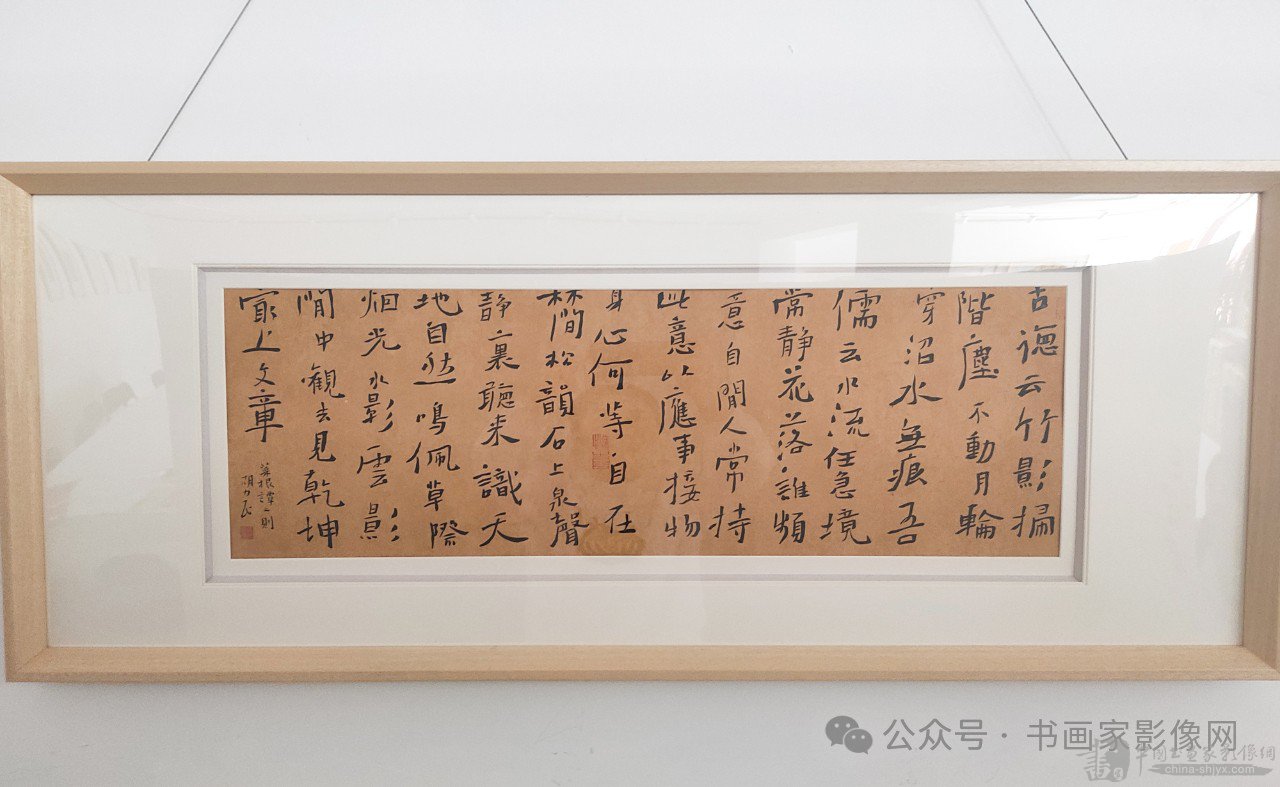 古德云竹影掃
階塵不動月輪
穿沼水無痕吾
儒云水流任急境
常静花落雖頻
意自閒人常持
此意以應事接物
身心何等自在
林間松韻石上泉聲
静裏聽来識天
地自然鳴佩草際
烟光水影雲影
閒中觀去見乾坤
㝡上文章
菜根譚一則
公众号 · 书画家影像网
中國书画家影像網
china-shjyx.com